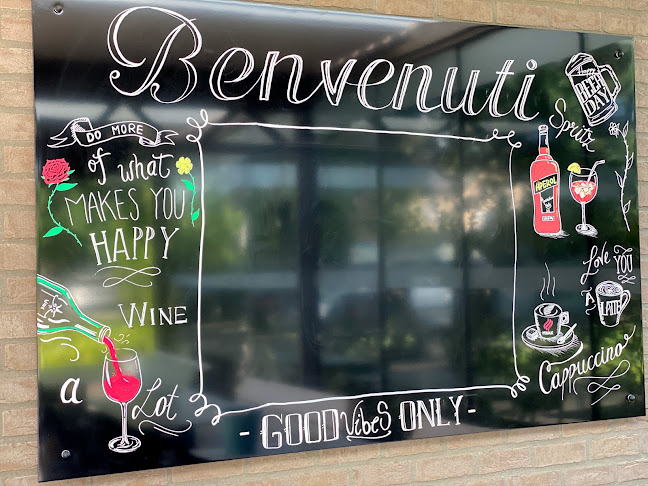 Benvenuti
DO MORE
of what
MAKES YOU
HAPPY
WINE
a
Lot
HAPPY
BEER
DAY
Spritz
APEROL
Love
YOU
A
LATTE
Cappuccino
- GOOD Vibes ONLY -